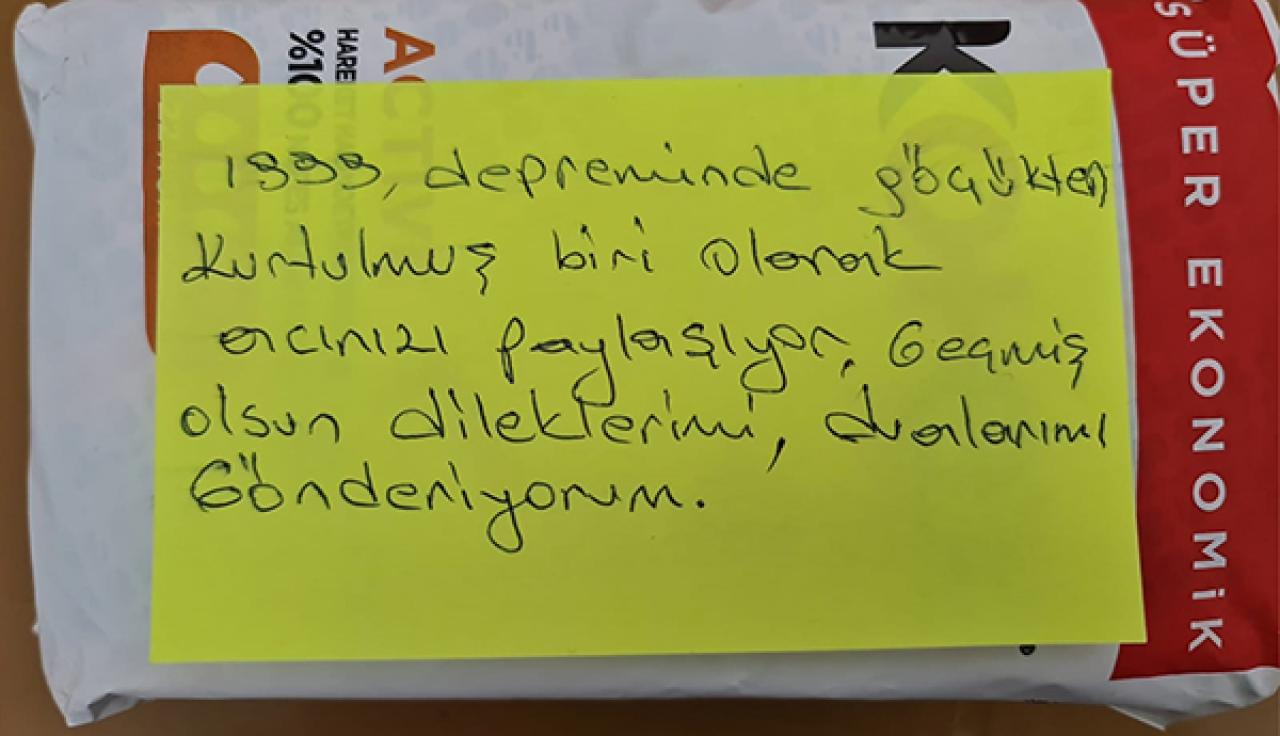 1999, depreminde göçükten
kurtulmuş biri olarak
acınızı paylaşıyor, Geçmiş
olsun dileklerimi, dualarımı
Gönderiyorum.
SÜPER EKONOMİK
ACTIV
%100
K